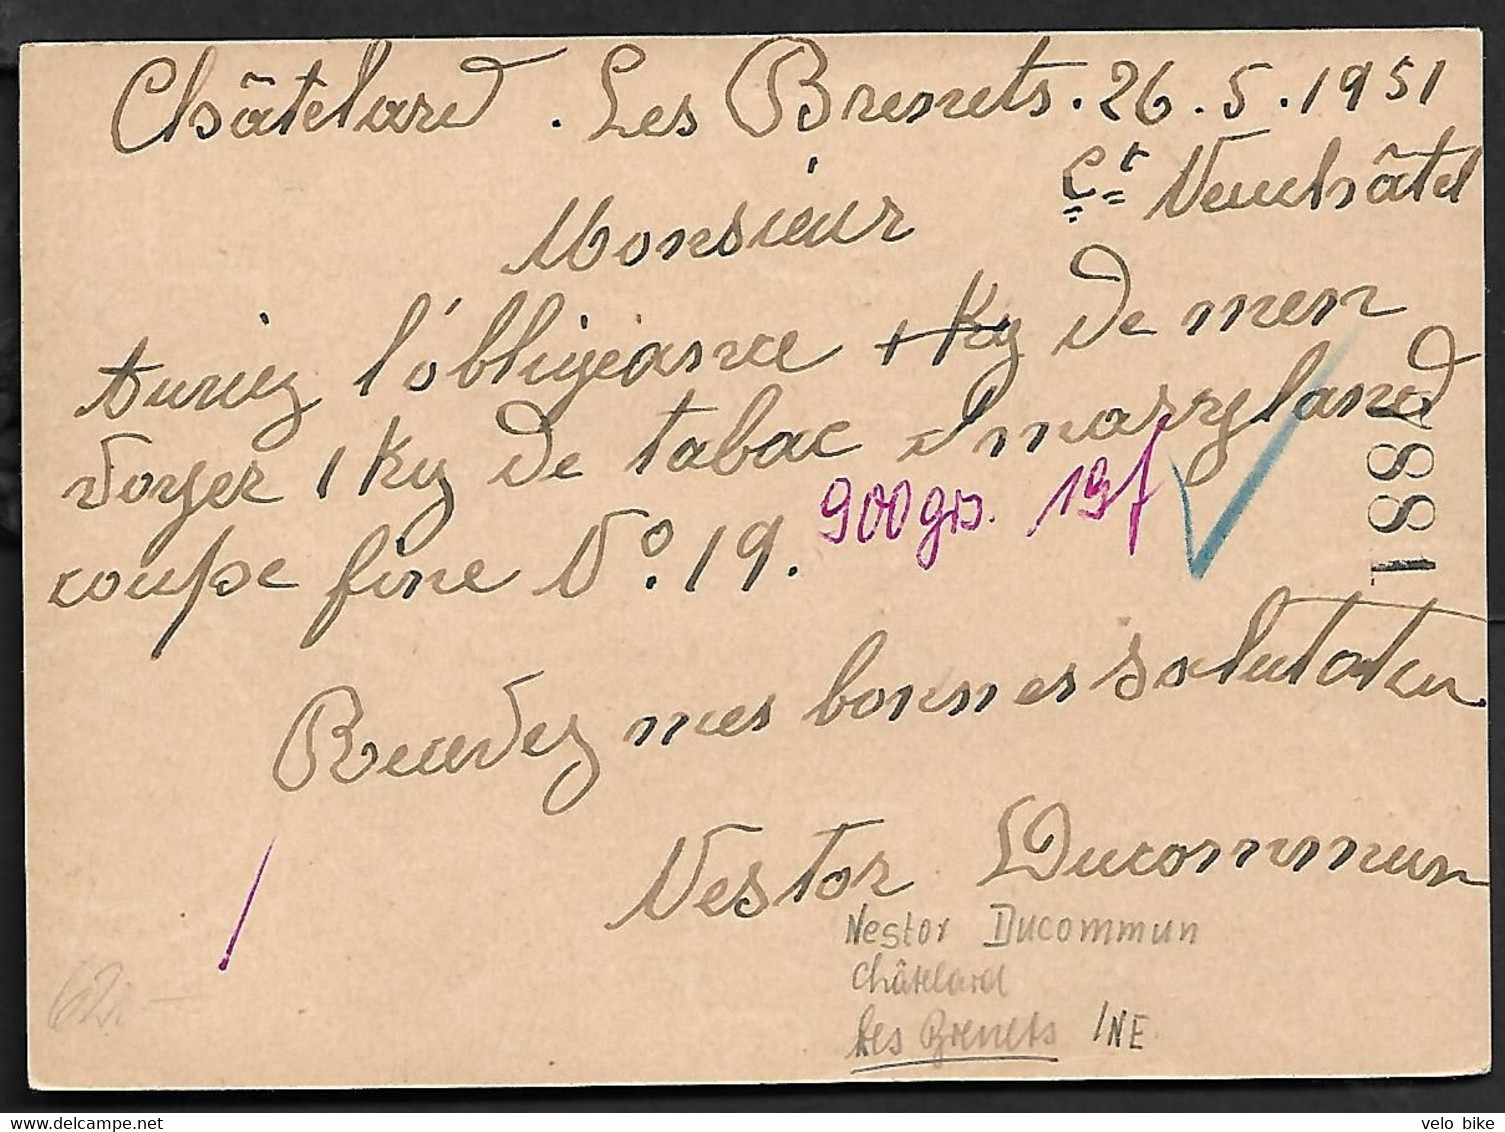 Châtelard. Les Brenets. 26.5.1951
Ct Neuchâtel
Monsieur
Auriez l'obligeance 1 Kg de men
voyer 1 Kg de tabac Maryland
coupe fine No. 19. 900grs. 19f
78881
Rendez mes bonnes salutation
Nestor Ducommun
Nestor Ducommun
Châtelard
Les Brenets /NE
velo bike